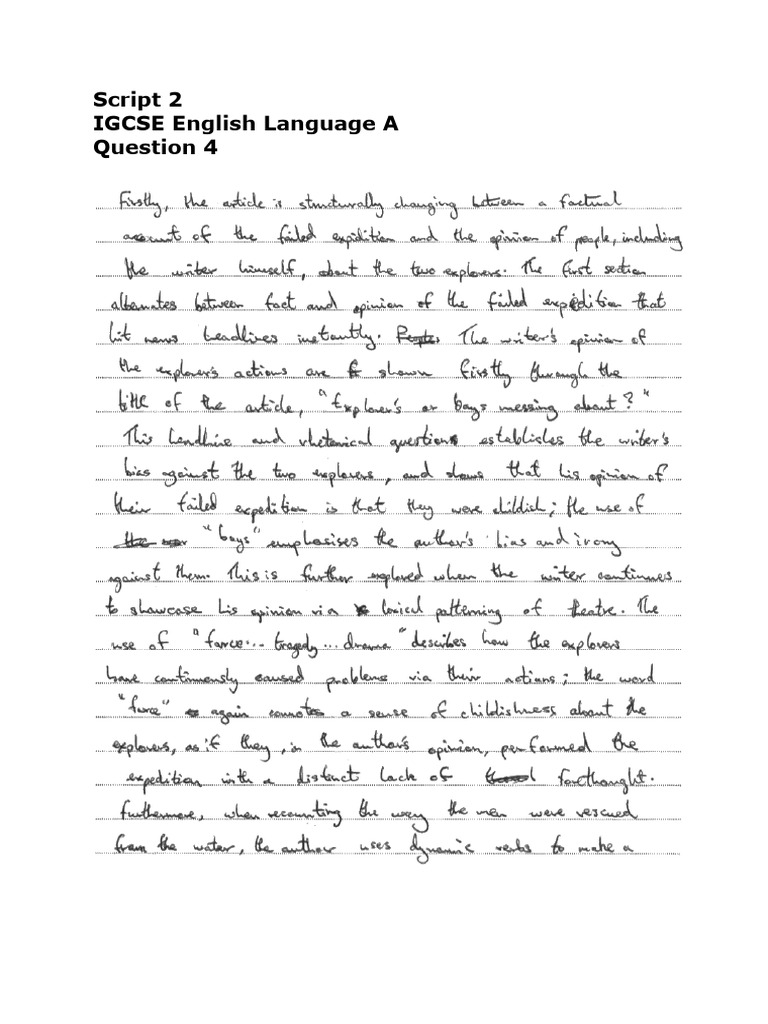 Script 2
IGCSE English Language A
Question 4
Firstly, the article is structurally changing between a factual
account of the failed expidition and the opinion of people, including
the writer himself, about the two explorers. The first section
alternates between fact and opinion of the failed expedition that
hit news headlines instantly. The writer's opinion of
the explorer's actions are shown firstly through the
title of the article, "Explorer's or boys messing about?"
This handline and rhetorical question establishes the writer's
bias against the two explorers, and shows that his opinion of
their failed expedition is that they were childish; the use of
"boys" emphasises the author's bias and irony
against them. This is further explored when the writer continues
to showcase his opinion via lexical patterning of theatre. The
use of "farce... tragedy... drama" describes how the explorers
have continuously caused problems via their actions; the word
"farce" again connotes a sense of childishness about the
explorers, as if they, in the author's opinion, performed the
expedition with a distinct lack of forethought.
Furthermore, when recounting the way the men were rescued
from the water, the author uses dynamic verbs to make a